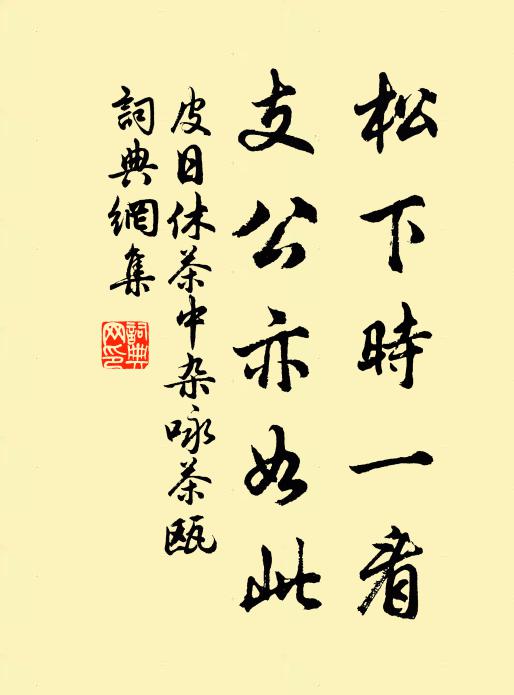 松下時一看
支公亦如此
皮日休茶中杂咏茶甌
詞典網集
詞典网印